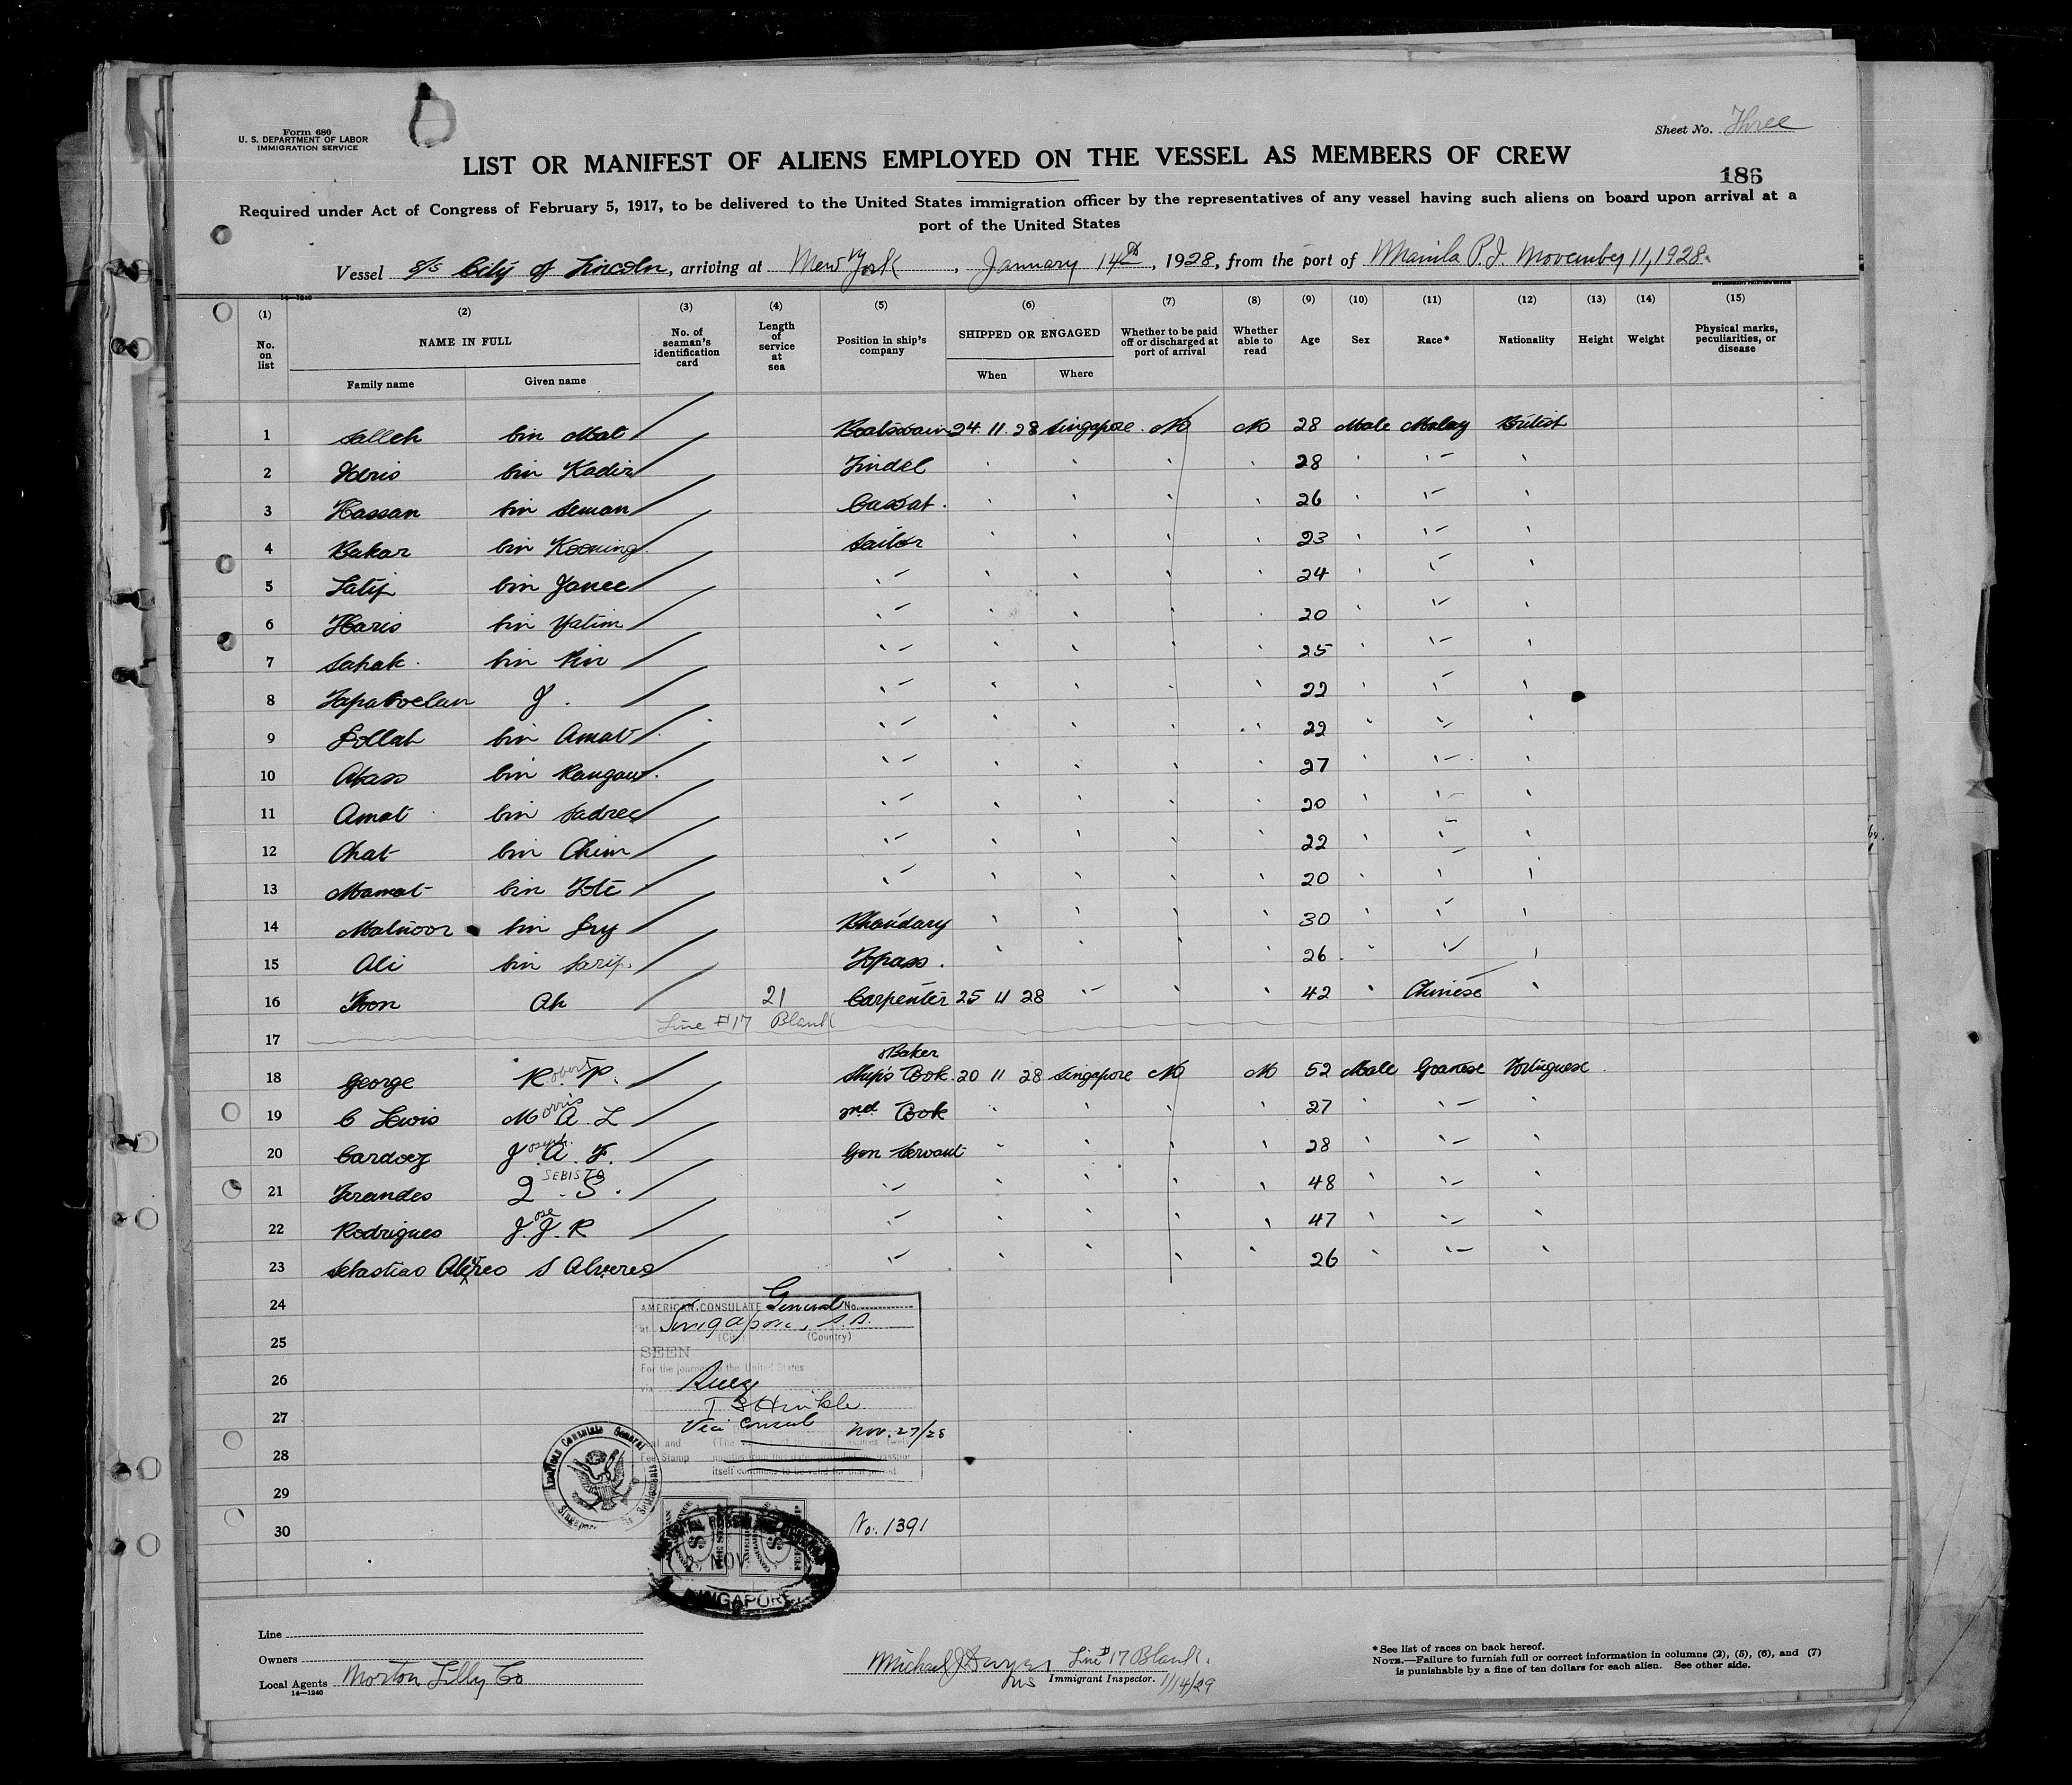 Form 680
U. S. DEPARTMENT OF LABOR
IMMIGRATION SERVICE
Sheet No. Three
LIST OR MANIFEST OF ALIENS EMPLOYED ON THE VESSEL AS MEMBERS OF CREW
186
Required under Act of Congress of February 5, 1917, to be delivered to the United States immigration officer by the representatives of any vessel having such aliens on board upon arrival at a
port of the United States
Vessel S/S City of Lincoln, arriving at New York, January 14th, 1928, from the port of Manila P.I. November 11, 1928.
(1) (2) (3) (4) (5) (6) (7) (8) (9) (10) (11) (12) (13) (14) (15)
No. on list NAME IN FULL No. of seaman's identification card Length of service at sea Position in ship's company SHIPPED OR ENGAGED Whether to be paid off or discharged at port of arrival Whether able to read Age Sex Race* Nationality Height Weight Physical marks, peculiarities, or disease
Family name Given name When Where
1 Salleh bin Mat Boatswain 24 11 28 Singapore No No 28 Male Malay British
2 Idris bin Kadir Tindel ' ' ' ' 28 ' ' '
3 Hassan bin Seman Cassat ' ' ' ' 26 ' ' '
4 Bakar bin Sailor ' ' ' ' 23 ' ' '
5 Latif bin Janee ' ' ' ' ' 24 ' ' '
6 Haris bin Yatim ' ' ' ' ' 20 ' ' '
7 Sahak bin ' ' ' ' ' 25 ' ' '
8 J. ' ' ' ' ' 22 ' ' '
9 Dollah bin Amat ' ' ' ' ' 22 ' ' '
10 bin ' ' ' ' ' 27 ' ' '
11 Amat bin Sadree ' ' ' ' ' 20 ' ' '
12 Chat bin Chim ' ' ' ' ' 22 ' ' '
13 Mamat bin ' ' ' ' ' 20 ' ' '
14 Matnoor bin Bhandary ' ' ' ' 30 ' ' '
15 Ali bin Sarip Topass ' ' ' ' 26 ' ' '
16 Ah 21 Carpenter 25 11 28 ' ' ' 42 ' Chinese '
Line #17 Blank
17
18 George Robert P. Ship's Cook & Baker 20 11 28 Singapore No No 52 Male Goanese Portuguese
19 C Lewis Morris A. L 2nd Cook ' ' ' ' 27 ' ' '
20 Cardoz Joseph A. F. Gen Servant ' ' ' ' 28 ' ' '
21 SEBISTO S. ' ' ' ' ' 48 ' ' '
22 Rodrigues Jose J. R ' ' ' ' ' 47 ' ' '
23 Sebastiao S Alveres ' ' ' ' ' 26 ' ' '
24
25
26
27
28
29
30
AMERICAN CONSULATE General No.
at Singapore, S.S.
(City) (Country)
SEEN
For the journey to the United States
via Suez
Vice Consul Nov. 27/28
Seal and
Fee Stamp
itself continues to be valid for that period.
American Consulate General
Singapore
No. 1391
NOV
SINGAPORE
Line
Owners
Local Agents Norton Lilly Co
14—1240
Michael J Line #17 Blank.
Ins Immigrant Inspector. 1/14/29
*See list of races on back hereof.
NOTE.—Failure to furnish full or correct information in columns (2), (5), (6), and (7)
is punishable by a fine of ten dollars for each alien. See other side.